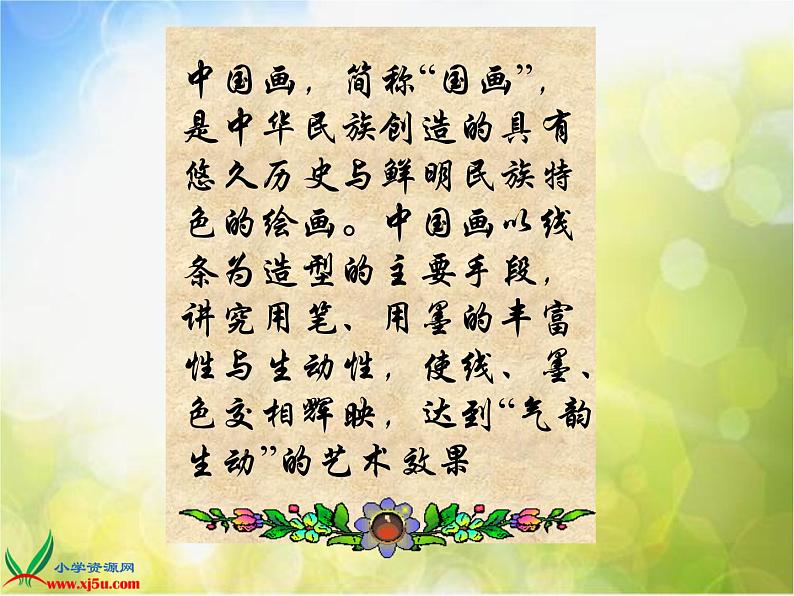 中国画，简称“国画”，
是中华民族创造的具有
悠久历史与鲜明民族特
色的绘画。中国画以线
条为造型的主要手段，
讲究用笔、用墨的丰富
性与生动性，使线、墨、
色交相辉映，达到“气韵
生动”的艺术效果
小学资源网
www.xj5u.com